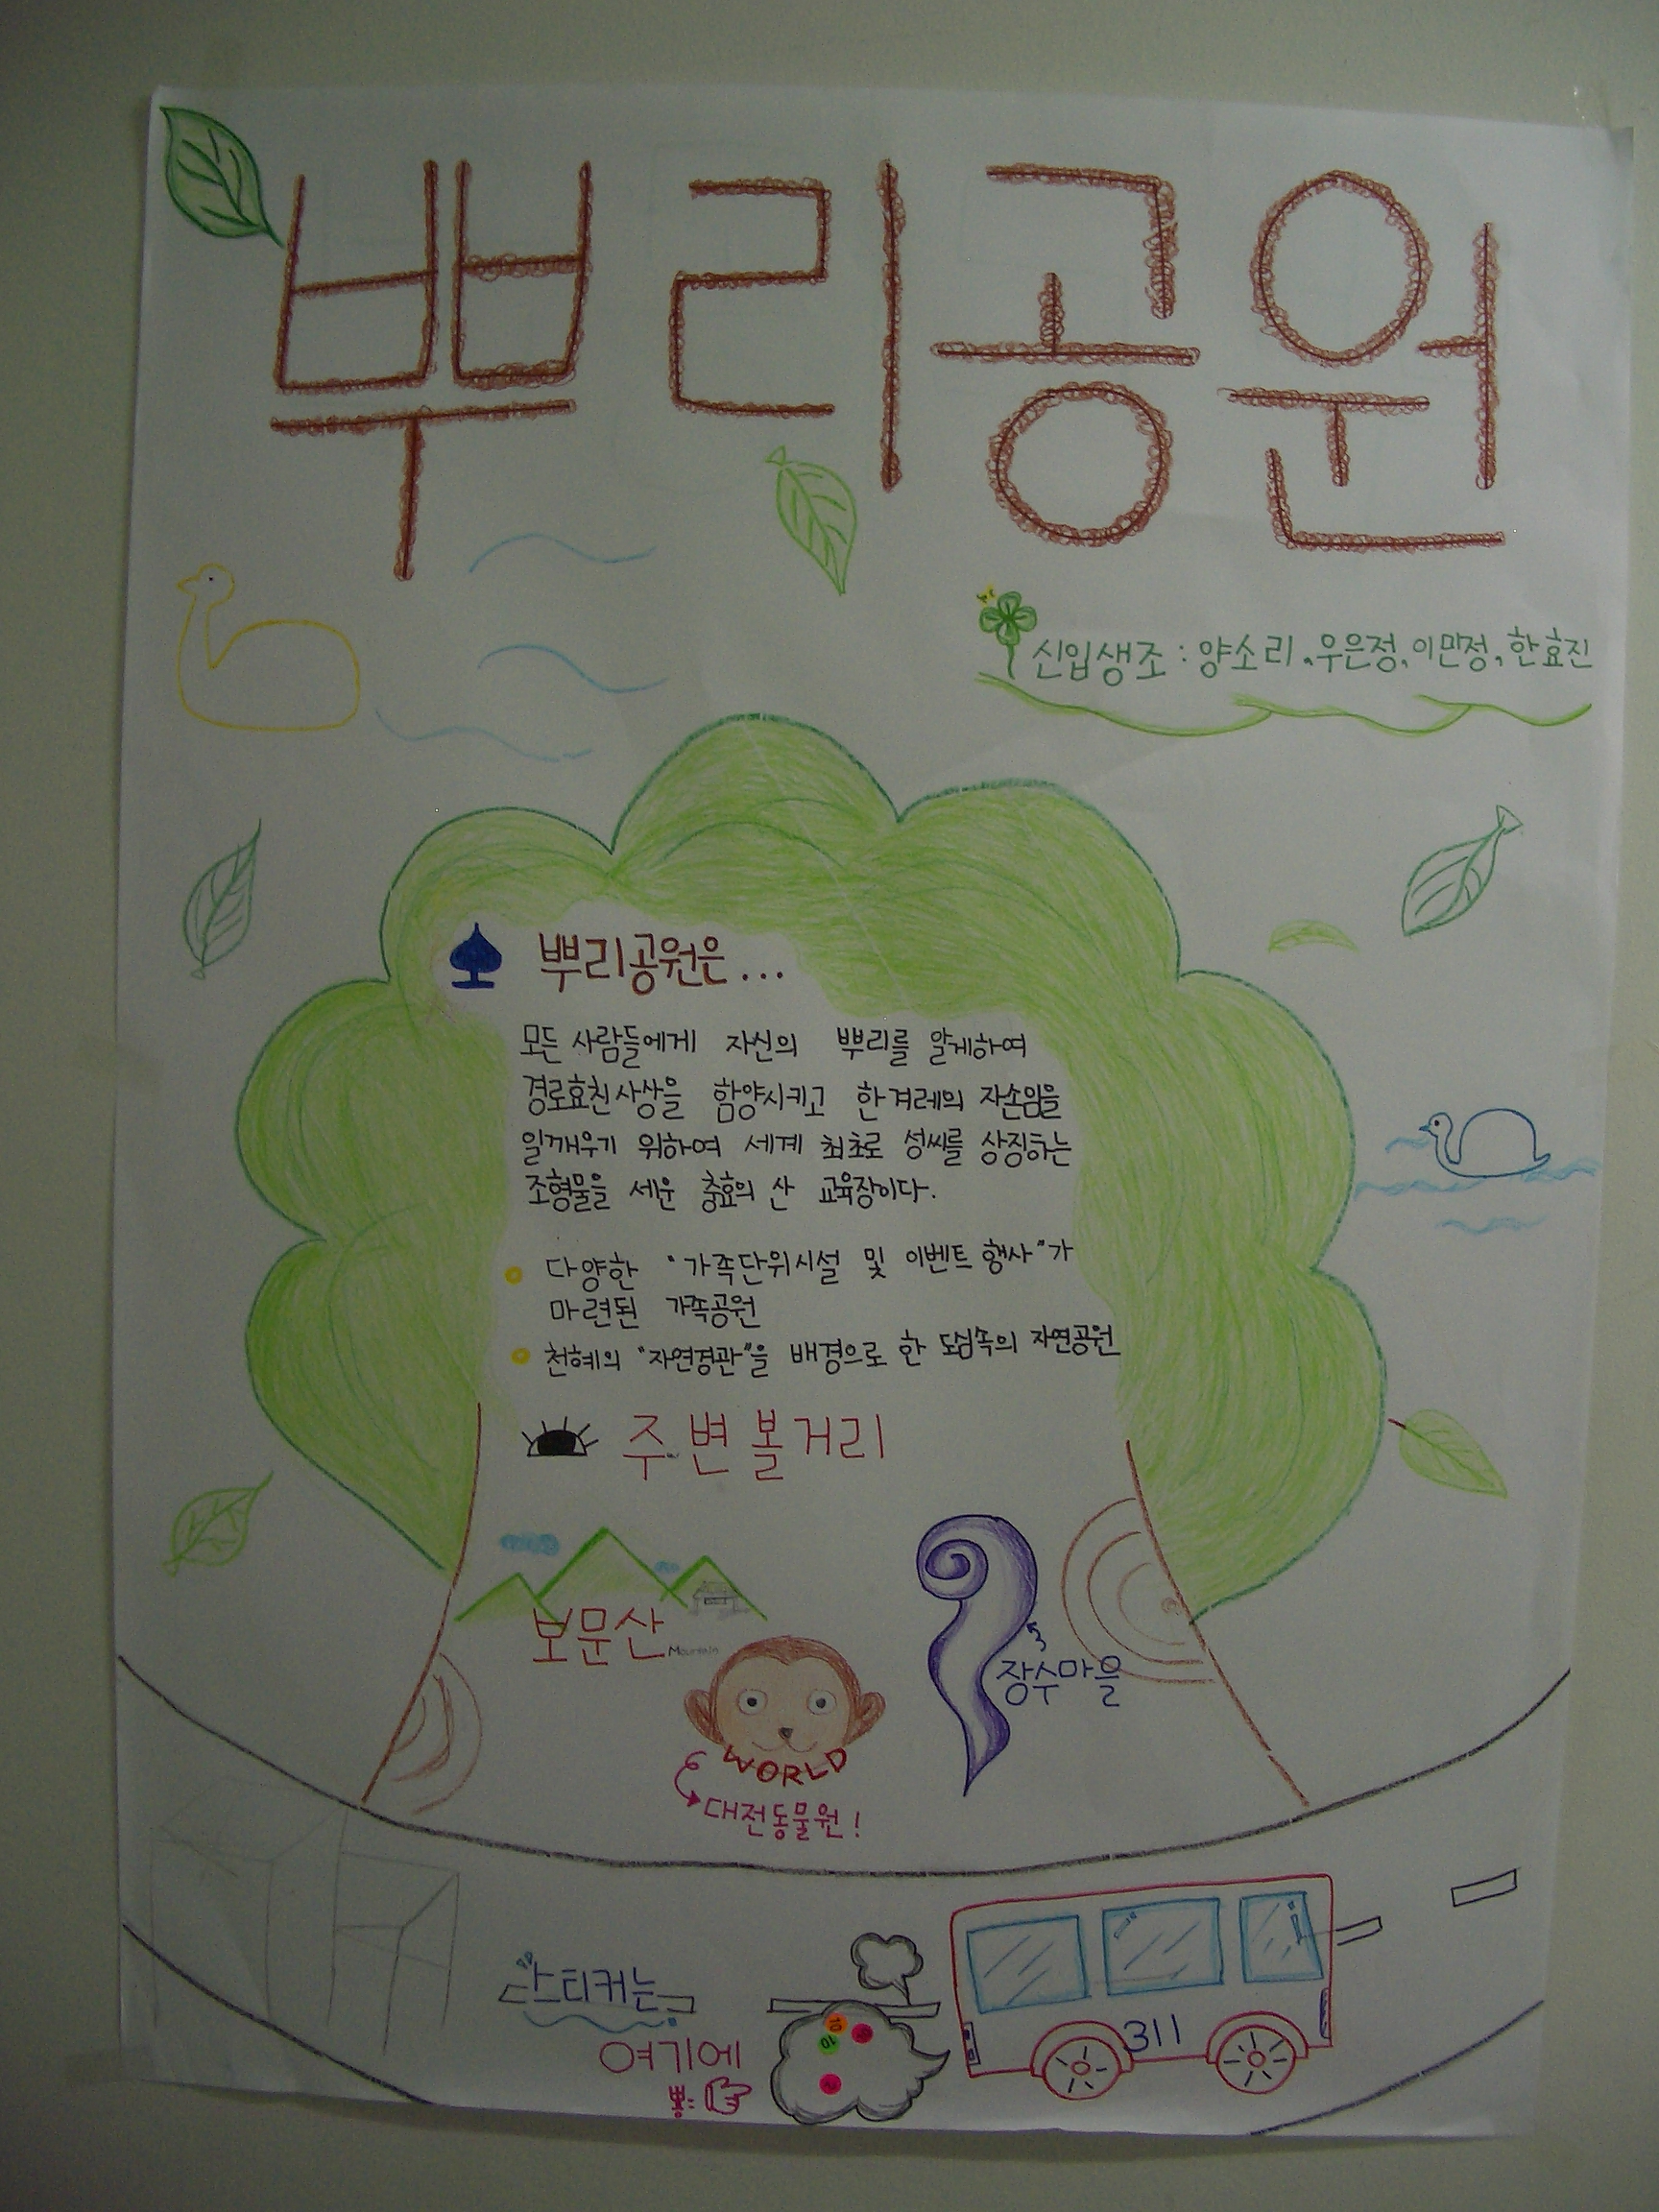 뿌리공원
신입생조 : 양소리, 우은정, 이민정, 한효진
뿌리공원은...
모든 사람들에게 자신의 뿌리를 알게하여
경로효친사상을 함양시키고 한겨레의 자손임을
일깨우기 위하여 세계 최초로 성씨를 상징하는
조형물을 세운 충효의 산 교육장이다.
다양한 "가족단위시설 및 이벤트 행사"가
마련된 가족공원
천혜의 "자연경관"을 배경으로 한 도심속의 자연공원
주변볼거리
보문산 Mountain
장수마을
WORLD
대전동물원!
스티커는
여기에
뿅:
10
10
311